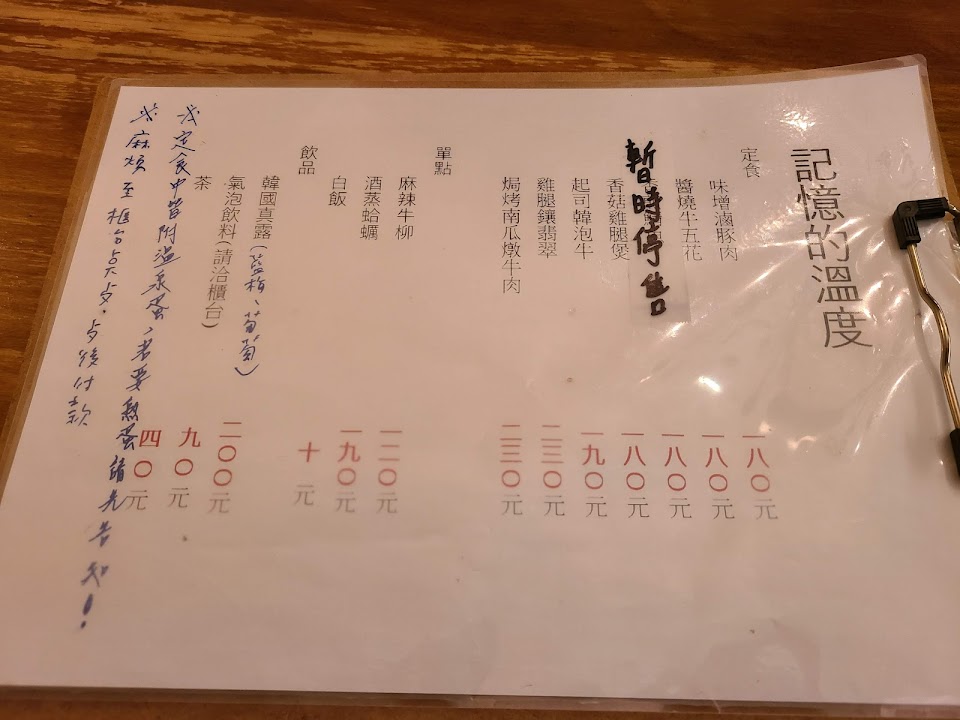 記憶的溫度
定食
味增滷豚肉 一八〇元
醬燒牛五花 一八〇元
暫時停售 一八〇元
香菇雞腿煲 一八〇元
起司韓泡牛 一九〇元
雞腿鑲翡翠 二三〇元
焗烤南瓜燉牛肉 二三〇元
單點
麻辣牛柳 一二〇元
酒蒸蛤蠣 一九〇元
白飯 十元
飲品
韓國真露(藍梅、葡萄) 二〇〇元
氣泡飲料(請洽櫃台) 九〇元
茶 四〇元
※定食中皆附溫泉蛋、若要熟蛋請先告知!
※麻煩至櫃台点歺,点後付款